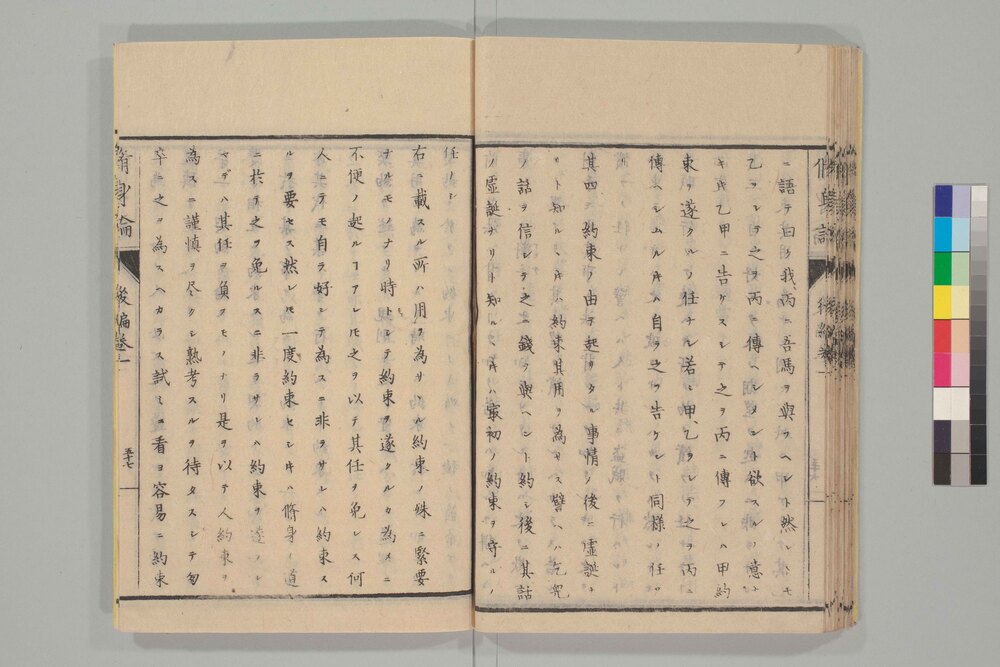 ニ語テ曰ク我丙ニ吾馬ヲ與ラヘント然レトモ
乙ヲシテ之ヲ丙ニ傳ヘシメント欲スルノ意ナ
キ乙甲ニ告ケスシテ之ヲ丙ニ傳フレハ甲約
束ヲ遂クルノ任ナシ若シ甲乙ヲシテ之ヲ丙ニ
傳ヘシムル片ハ自ラ之ヲ告ケシト同様ノ任アリ
其四 約束ノ由テ起リタル事情ノ後ニ虚誕ナ
リト知ルヽ片ハ約束其用ヲ為サス譬ヘハ乞兒
ノ話ヲ信シテ之ニ錢ヲ與ヘント約シ後ニ其話
ノ虚誕ナリト知ルヽ片ハ最初ノ約束ヲ守ルノ
任ナシ
右ニ載スル所ハ用ヲ為サヽル約束ノ殊ニ緊要
ナルモノナリ時トシテ約束ヲ遂クルカ為メニ
不便ノ起ルコアレ𪜈之ヲ以テ其任ヲ免レス何
人ニテモ自ラ好ンテ為スニ非ラサレハ約束ス
ルヲ要セス然レ𪜈一度約束セシ片ハ脩身ノ道
ニ於テ之ヲ免ルヽニ非ラサレハ約束ヲ達スル
マデハ其任ヲ負フモノナリ是ヲ以テ人約束ヲ
為スニ謹慎ヲ尽クシ熟考スルヲ待タスシテ匆
卒ニ之ヲ為スヘカラス試ミニ看ヨ容易ニ約束
脩身論
後編巻之一
五十七